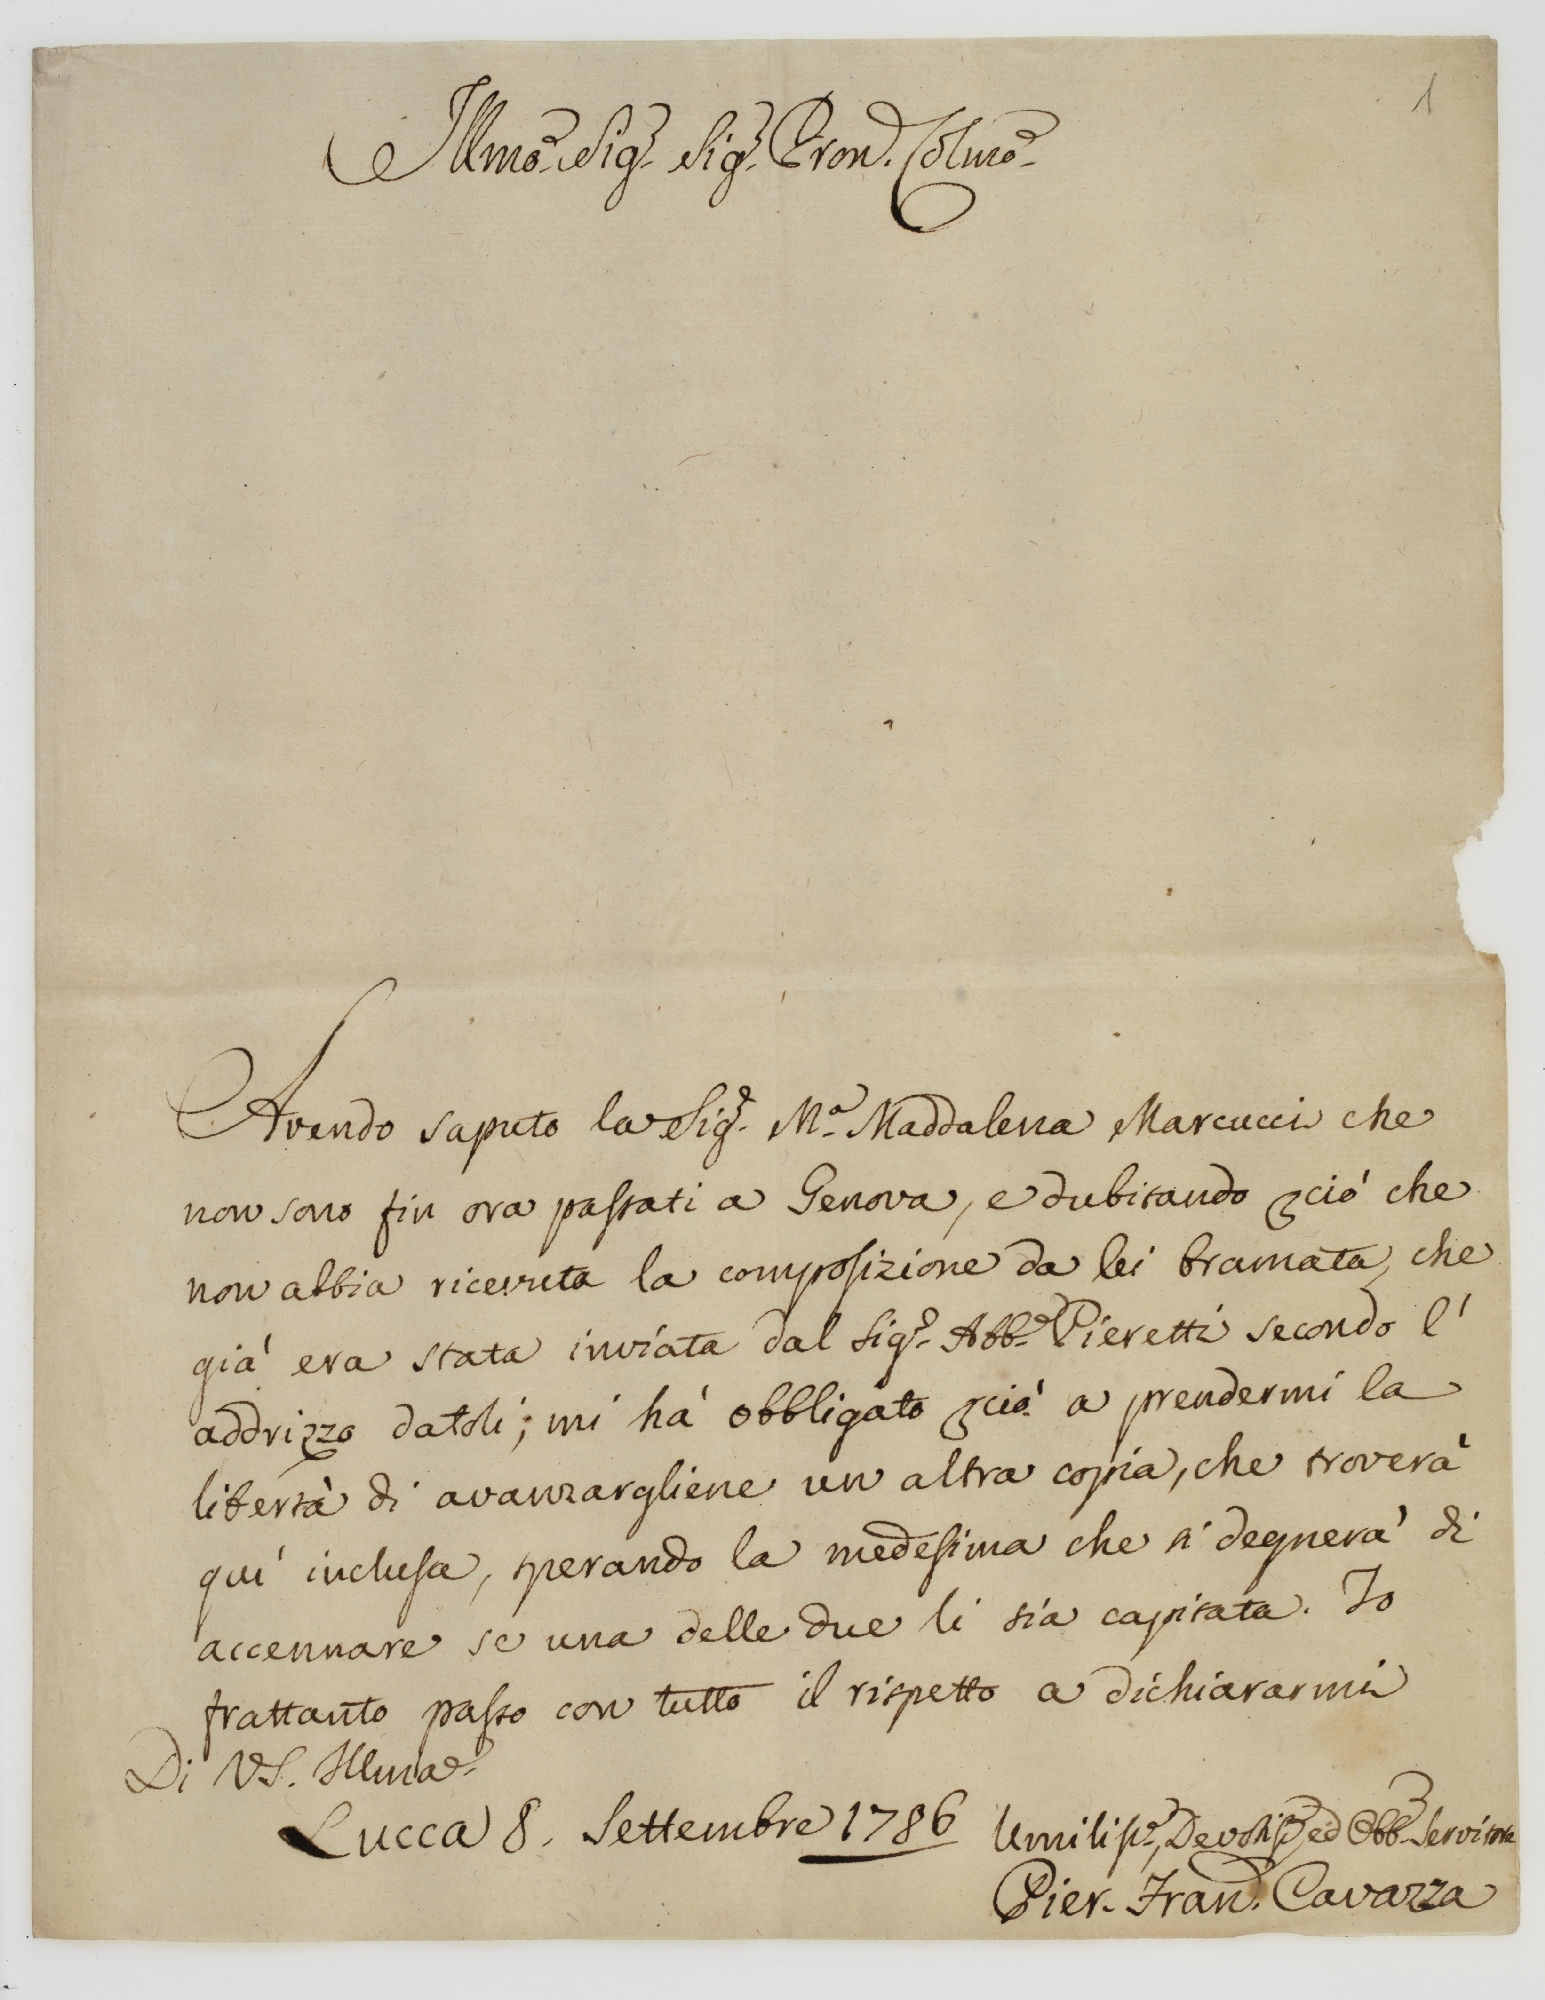 1
Illmo. Sigr. Sigr. Pron. Colmo.
Avendo saputo la Sigra. Ma. Maddalena Marcucci che
non sono fin ora passati a Genova, e dubitando perciò che
non abbia ricevuta la composizione da lei bramata, che
già era stata inviata dal Sigr. Abbe. Pieretti secondo l'
addrizzo datoli; mi hà obbligato perciò a prendermi la
libertà di avanzargliene un altra copia, che troverà
quì inclusa, sperando la medesima che si degnerà di
accennare se una delle due li sia capitata. Io
frattanto passo con tutto il rispetto a dichiararmi
Di VS. Illma.
Lucca 8. Settembre 1786
Umilisso., Devotisso. ed Obbo. Servitore
Pier. Frano. Cavazza